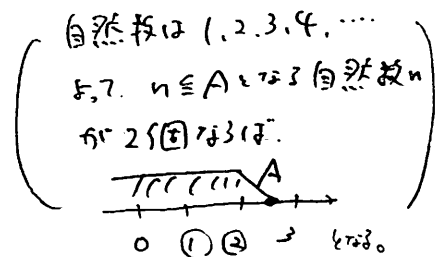 自然数は 1, 2, 3, 4, ‥‥
よって、n≦Aとなる自然数n
が2個ならば、
A
0 ① ② 3 となる。